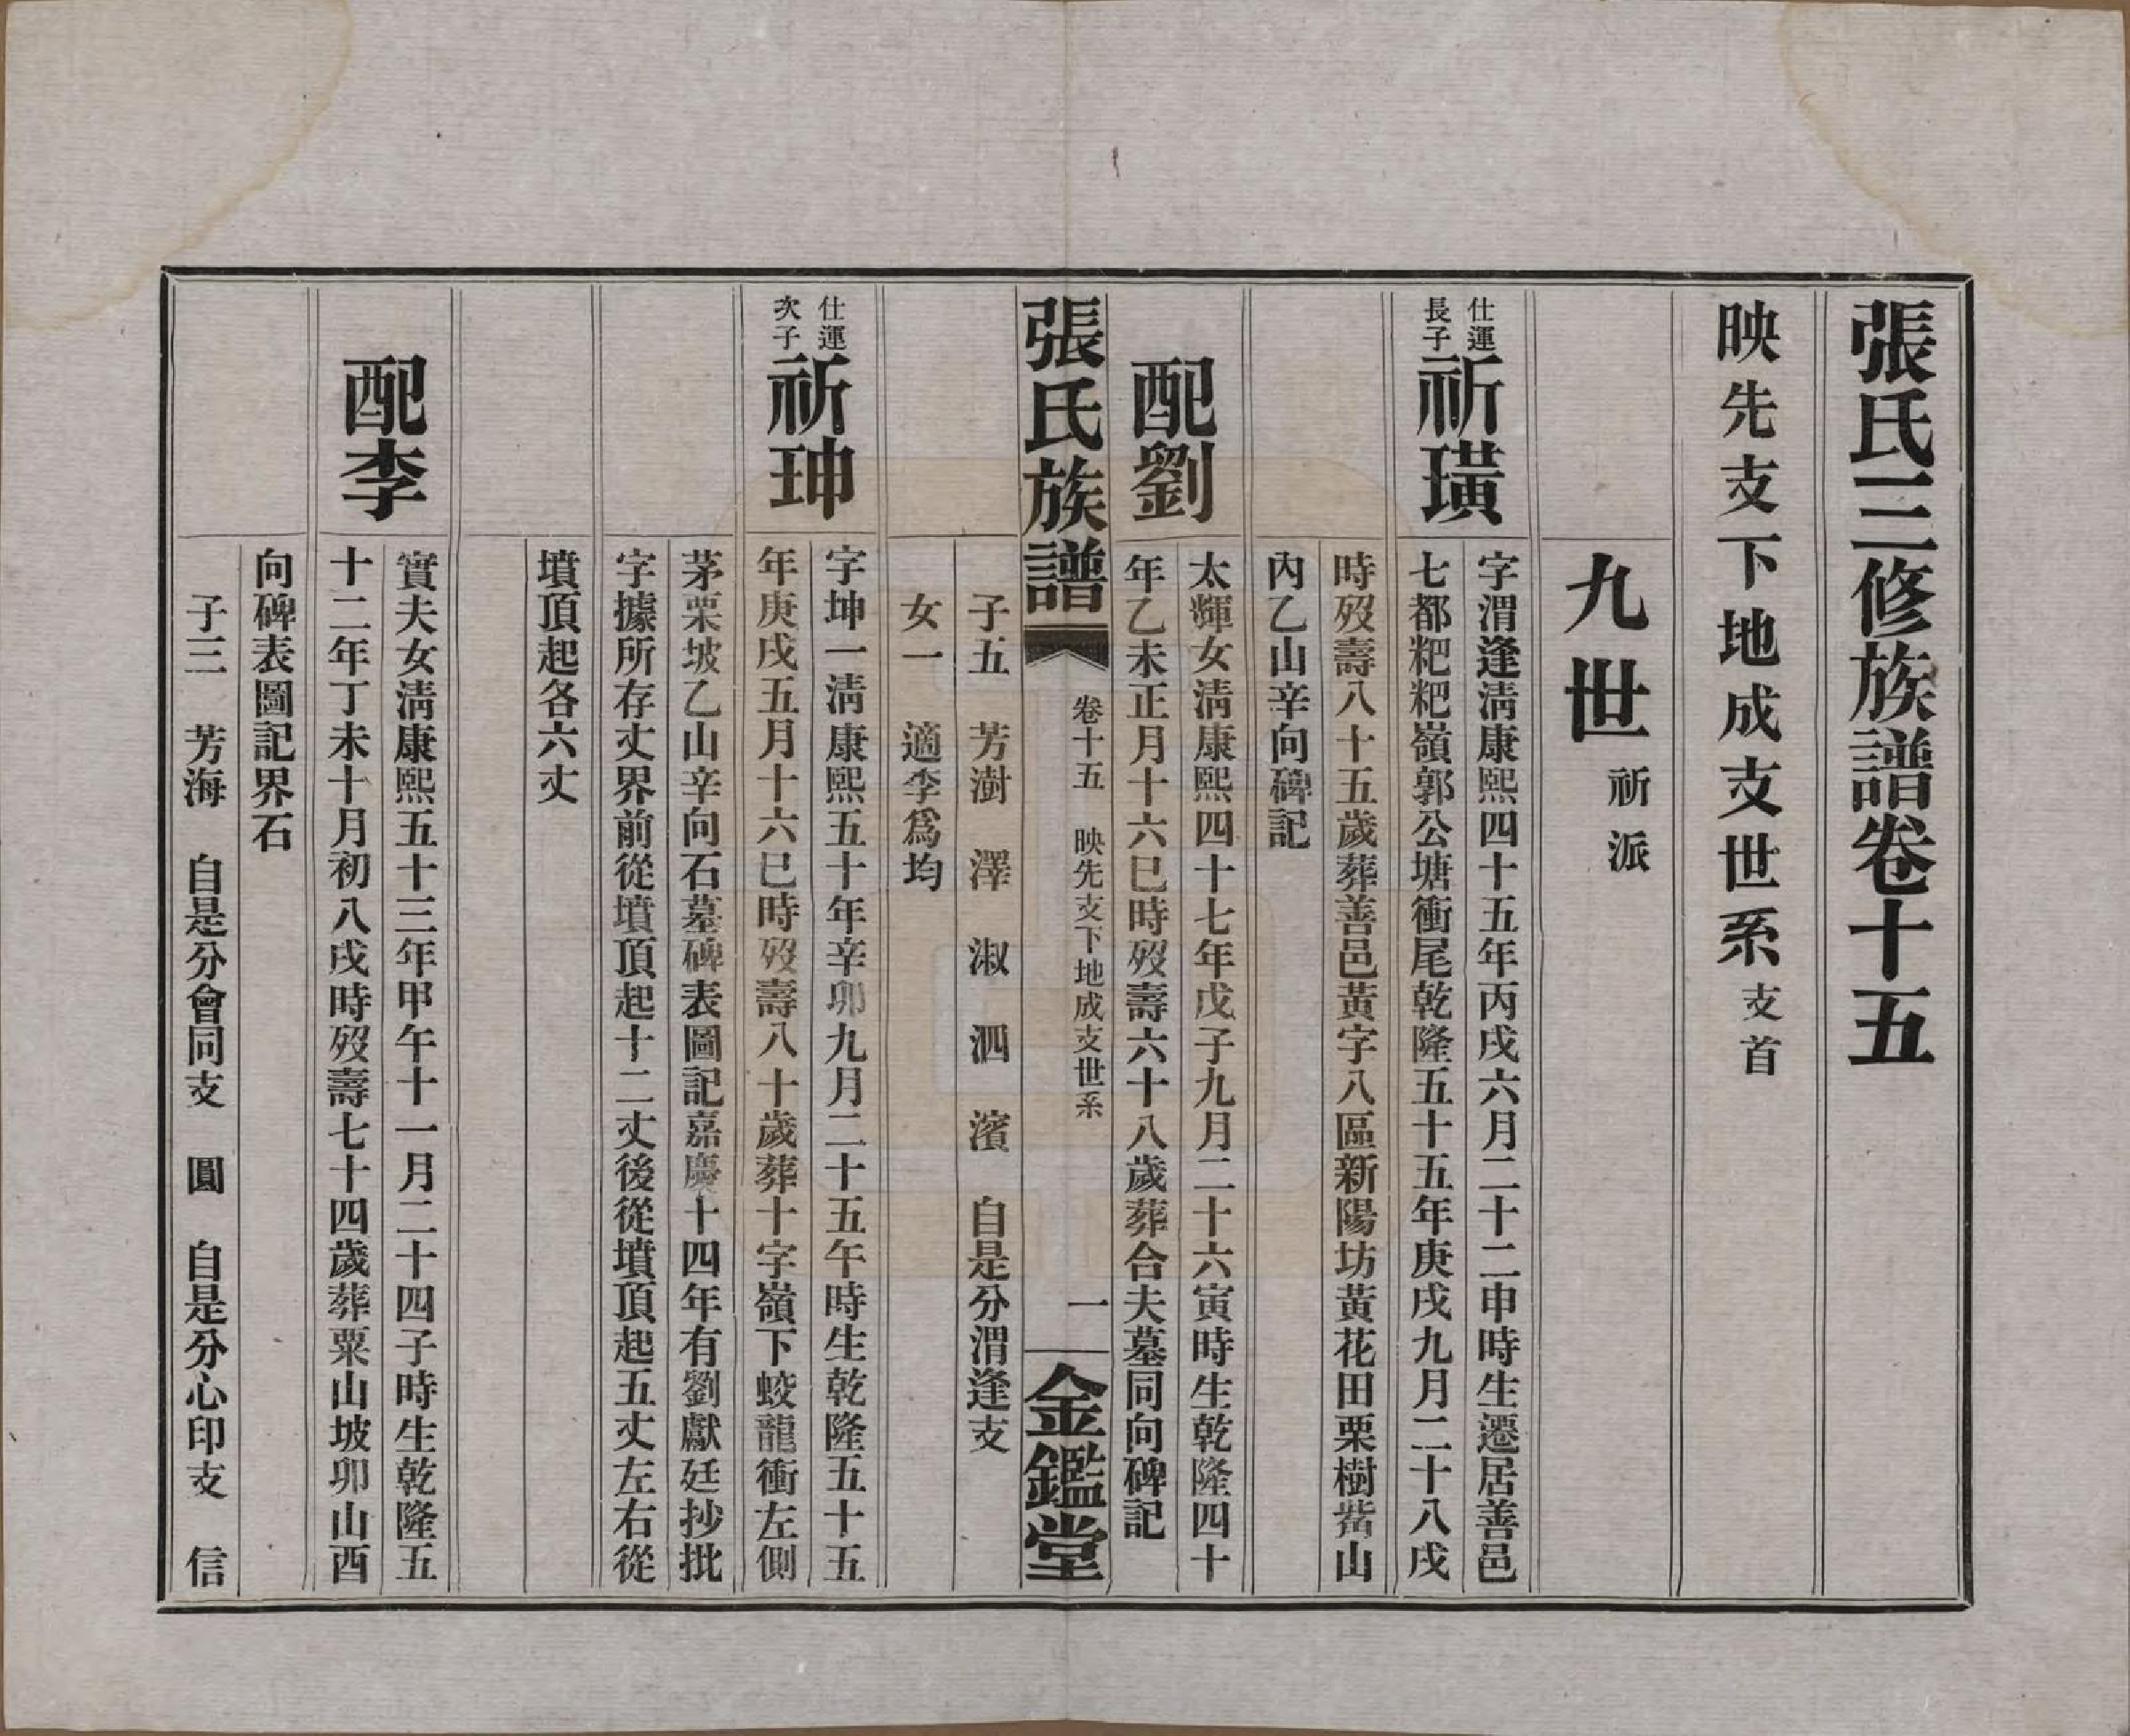 張氏三修族譜卷十五
映先支下地成支世系支首
九世祈派
仕運長子祈璜
字渭逢淸康熙四十五年丙戌六月二十二申時生遷居善邑
七都粑粑嶺郭公塘衝尾乾隆五十五年庚戌九月二十八戌
時歿壽八十五歲葬善邑黃字八區新陽坊黃花田栗樹觜山
內乙山辛向碑記
配劉
太輝女淸康熙四十七年戊子九月二十六寅時生乾隆四十
年乙未正月十六巳時歿壽六十八歲葬合夫墓同向碑記
張氏族譜 卷十五 映先支下地成支世系 一 金鑑堂
子五 芳澍 澤 淑 泗 濱 自是分渭逢支
女一 適李爲均
仕運次子祈珅
字坤一淸康熙五十年辛卯九月二十五午時生乾隆五十五
年庚戌五月十六巳時歿壽八十歲葬十字嶺下蛟龍衝左側
茅栗坡乙山辛向石墓碑表圖記嘉慶十四年有劉獻廷抄批
字據所存丈界前從墳頂起十二丈後從墳頂起五丈左右從
墳頂起各六丈
配李
實夫女淸康熙五十三年甲午十一月二十四子時生乾隆五
十二年丁未十月初八戌時歿壽七十四歲葬粟山坡卯山酉
向碑表圖記界石
子三 芳海 自是分會同支 圓 自是分心印支 信